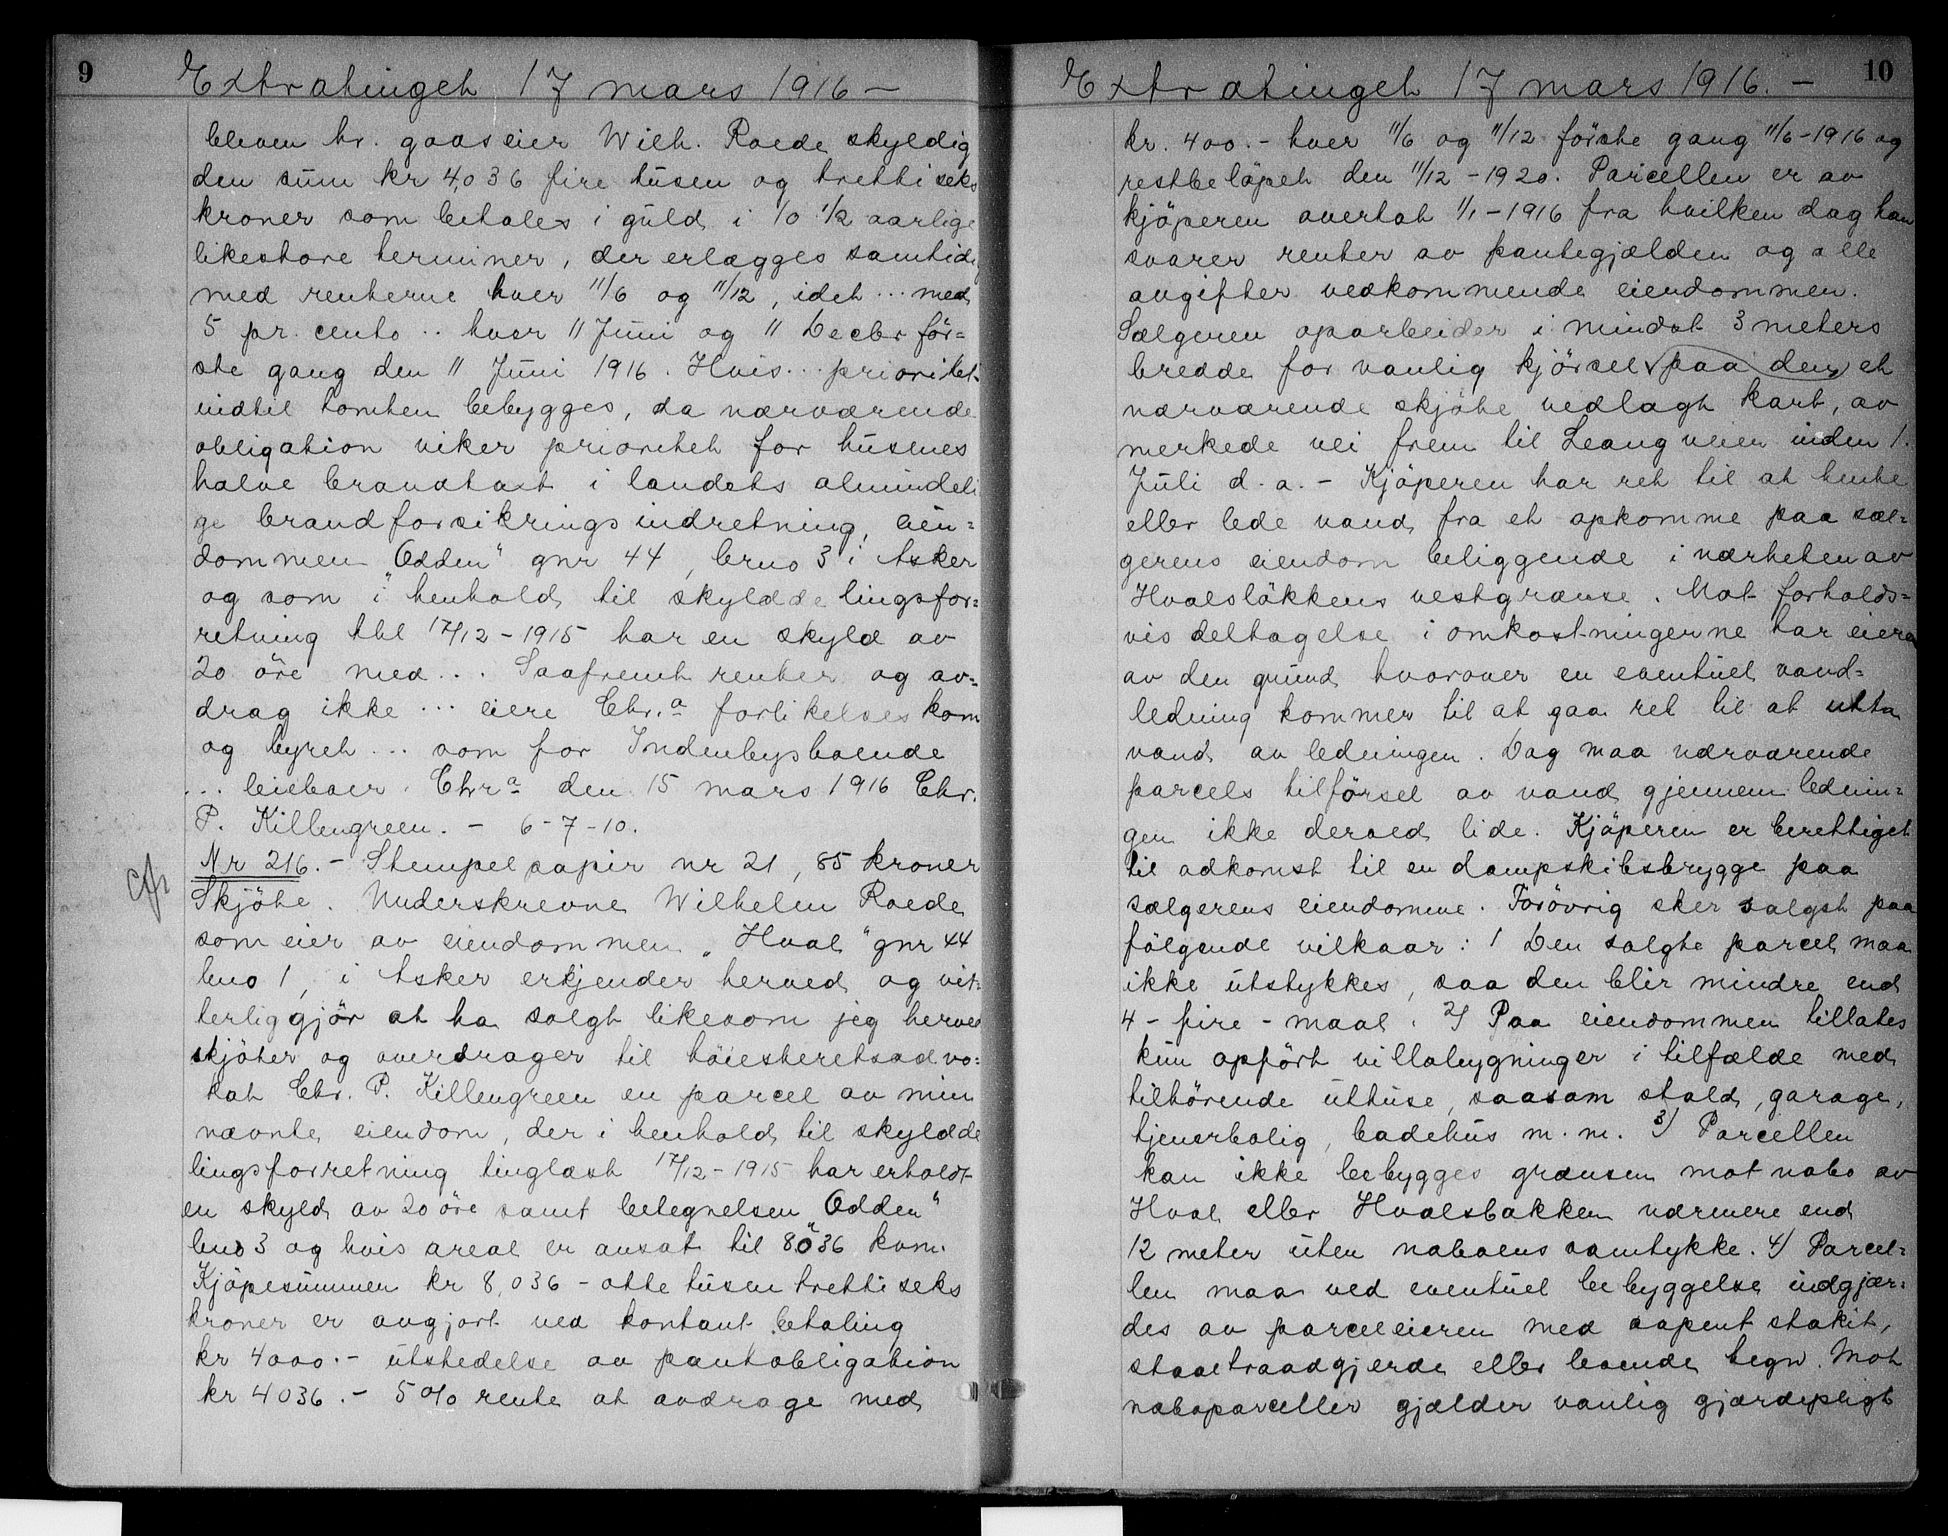 9
Extratinget 17 mars 1916 —
bleven hr. gaaseier Wilh. Roede skyldig
den sum kr 4,036 fire tusen og tretti seks
kroner som betales i guld i 10 1/2 aarlige
likestore terminer, der erlægges samtidig
med renterne hver 11/6 og 11/12, idet ... med
5 pr. cento .. hver 11 Juni og 11 Decbr før=
ste gang den 11 Juni 1916. Hvis ... prioritet
indtil tomten bebygges, da nærværende
obligation viker prioritet for husenes
halve brandtakst i landets almindeli
ge brandforsikringsindretning, eien=
dommen „Odden" gnr 44, brno 3 i Asker
og som i henhold til skylddelingsfor=
retning tbl 17/12-1915 har en skyld av
20 öre med ... Saafremt renter og av=
drag ikke ... eiere Chr.a forlikelseskom
og byret ... som for Indenbysboende
... leieboer. Chr.a den 15 mars 1916 Chr.
P. Killengreen. — 6-7-10.
cfr
Nr 216. — Stempelpapir nr 21, 85 kroner
Skjöte. Underskrevne Wilhelm Roede
som eier av eiendommen „Hval" gnr 44
bno 1, i Asker erkjender herved og vit=
terliggjör at ha solgt likesom jeg herved
skjöter og overdrager til höiesteretsadvo=
kat Chr. P. Killengreen en parcel av min
nævnte eiendom, der i henhold til skyldde
lingsforretning tinglæst 17/12-1915 har erholdt
en skyld av 20 öre samt betegnelsen Odden"
bno 3 og hvis areal er ansat til 8036 kvm.
Kjöpesummen kr 8,036 - otte tusen tretti seks
kroner er avgjort ved kontant betaling
kr 4000.- utstedelse av pantobligation
kr 4036.- 5% rente at avdrage med
10
Extratinget 17 mars 1916. —
kr. 400.- hver 11/6 og 11/12 förste gang 11/6-1916 og
restbelöpet den 11/12-1920. Parcellen er av
kjöperen overtat 1/1-1916 fra hvilken dag han
svarer renter av pantegjælden og alle
avgifter vedkommende eiendommen.
Sælgeren oparbeider i mindst 3 meters
bredde for vanlig kjörsel paa den et
nærværende skjöte vedlagt kart, av
merkede vei frem til Leangveien inden 1.
Juli d.a. - Kjöperen har ret til at hente
eller lede vand fra et opkomme paa sæl=
gerens eiendom beliggende i nærheten av
Hvalsløkkens vestgrænse. Mot forholds=
vis deltagelse i omkostningerne har eieren
av den grund hvorover en eventuel vand=
ledning kommer til at gaa ret til at utta
vand av ledningen. Dog maa nærværende
parcels tilförsel av vand gjennem lednin=
gen ikke derved lide. Kjöperen er berettiget
til adkomst til en dampskibsbrygge paa
sælgerens eiendomme. Forövrig sker salget paa
fölgende vilkaar: 1 Den solgte parcel maa
ikke utstykkes, saa den blir mindre end
4 - fire - maal. 2/ Paa eiendommen tillates
kun opfört villabygninger i tilfælde med
tilhörende uthuse, saasom stald, garage,
tjenerbolig, badehus m.m. 3/ Parcellen
kan ikke bebygges grænsen mot nabo av
Hval eller Hvalsbakken nærmere end
12 meter uten naboens samtykke. 4/ Parcel=
len maa ved eventuel bebyggelse indgjær=
des av parceleieren med aapent stakit,
staaltraadgjerde eller levende hegn. Mot
naboparceller gjælder vanlig gjærdepligt